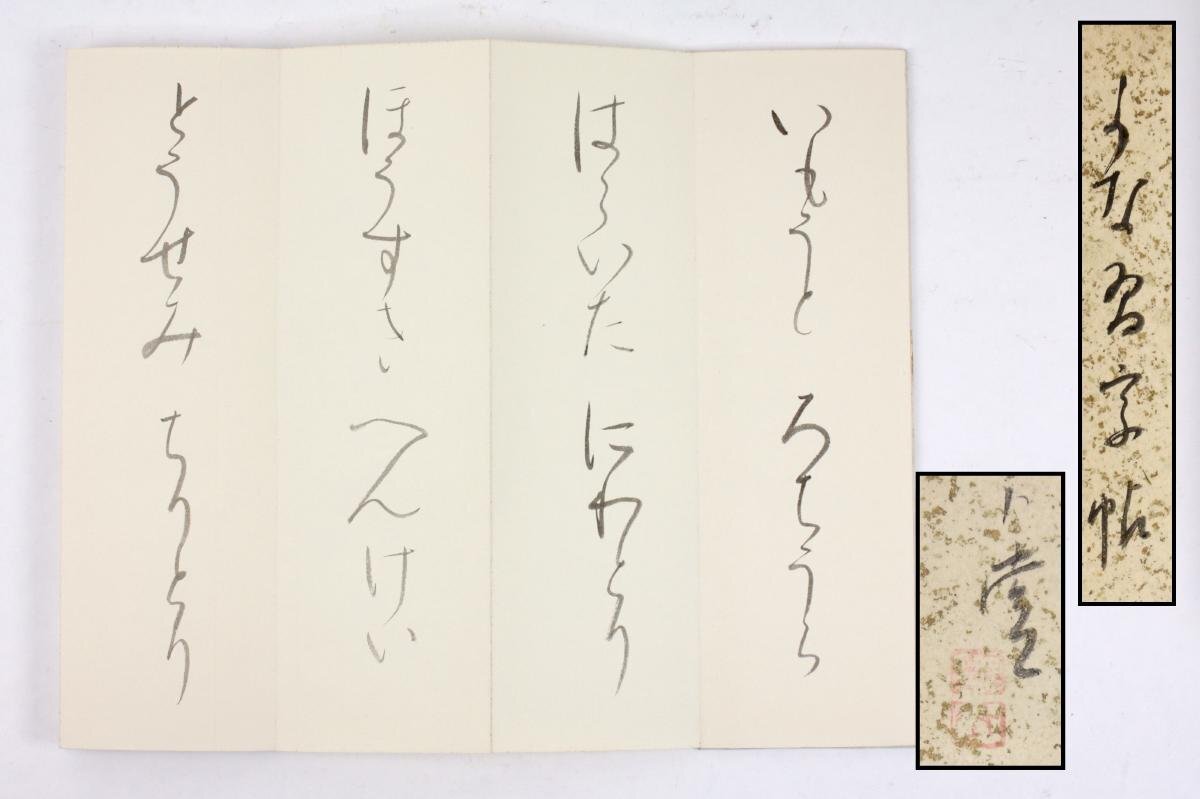 いもうと ろちうら
はらいた にわとり
ほうすき へんけい
とうせみ ちりとり
かな習字帖
堂